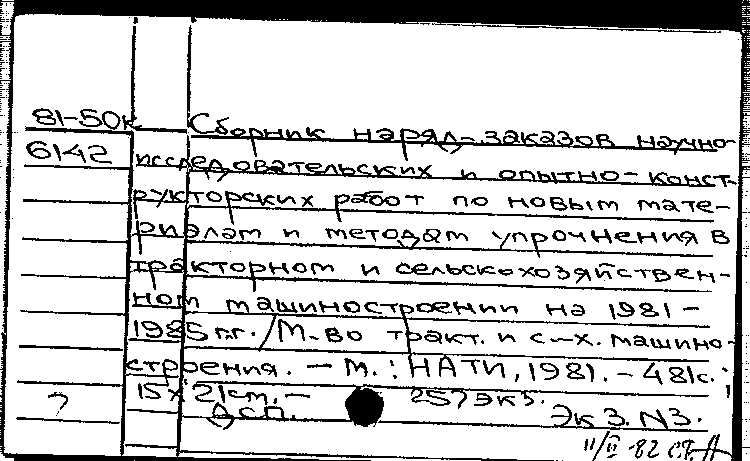 81-50к Сборник наряд-заказов научно-
6142 исследовательских и опытно-конст-
рукторских работ по новым мате-
риалам и методам упрочнения в
тракторном и сельскохозяйствен-
ном машиностроении на 1981-
1985 г.г. / М-во тракт. и с-х. машино-
строения. - М.: НАТИ, 1981. - 481с.;
? 15х21см. - 257экз.
ДСП. Экз. N3.
11/II-82